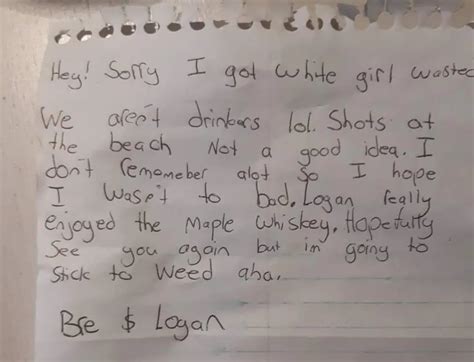 Hey! Sorry I got white girl wasted
We aren't drinkers lol. Shots at
the beach Not a good idea. I
don't rememeber alot so I hope
I wasn't to bad. Logan really
enjoyed the Maple whiskey. Hopefully
See you again but im going to
Stick to Weed aha.
Bre $ Logan